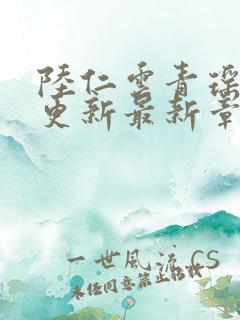 陸仁雲青瑶
更新最新章
一世風流 CS
未经同意禁止转载